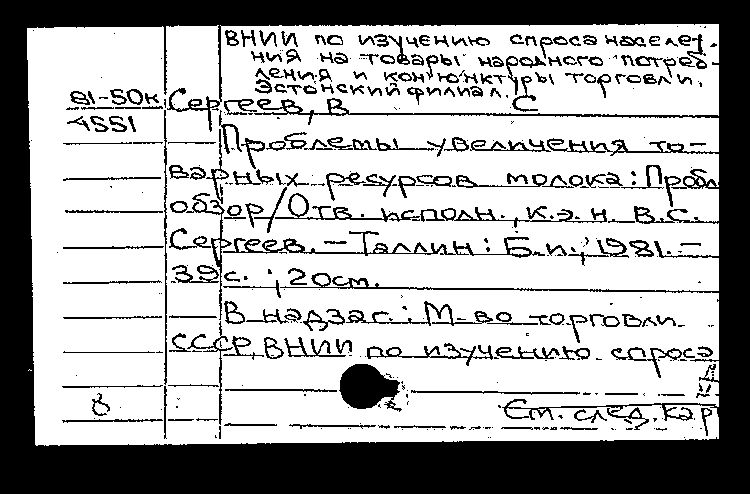 ВНИИ по изучению спроса населе-
ния на товары народного потреб-
ления и конъюнктуры торговли.
Эстонский филиал.
81-50к Сергеев, В С
4551
Проблемы увеличения то-
варных ресурсов молока: Пробл
обзор/Отв. исполн., к.э.н. В.С.
Сергеев.-Таллин: Б.и., 1981.-
39с.; 20см.
В надзаг.: М-во торговли
СССР, ВНИИ по изучению спроса
8
См. след. кар